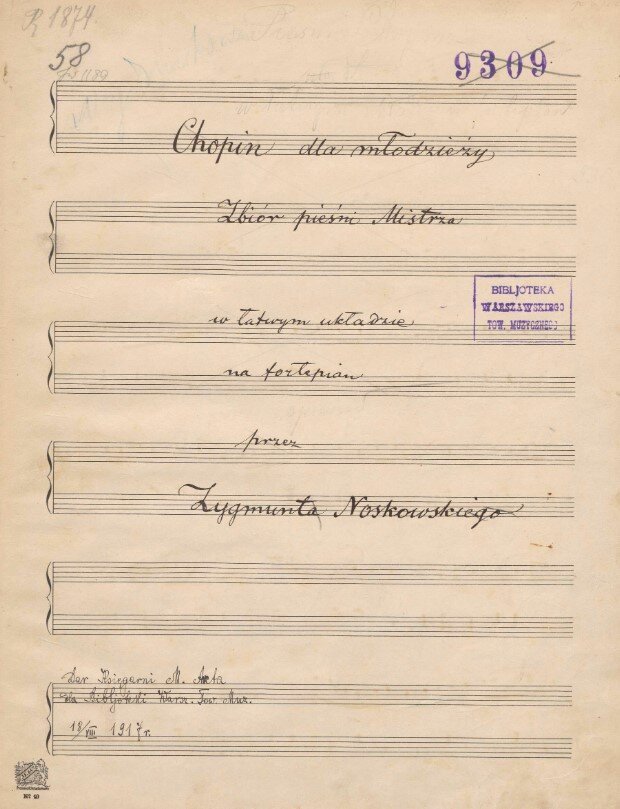 R 1874.
58
9309
Chopin dla młodzieży
Zbiór pieśni Mistrza
BIBLJOTEKA
WARSZAWSKIEGO
TOW. MUZYCZNEGO
w łatwym układzie
na fortepian
przez
Zygmunta Noskowskiego
Dar Księgarni M. Arcta
dla Bibljoteki Warsz. Tow. Muz.
18/VIII 1917 r.
Nº 10